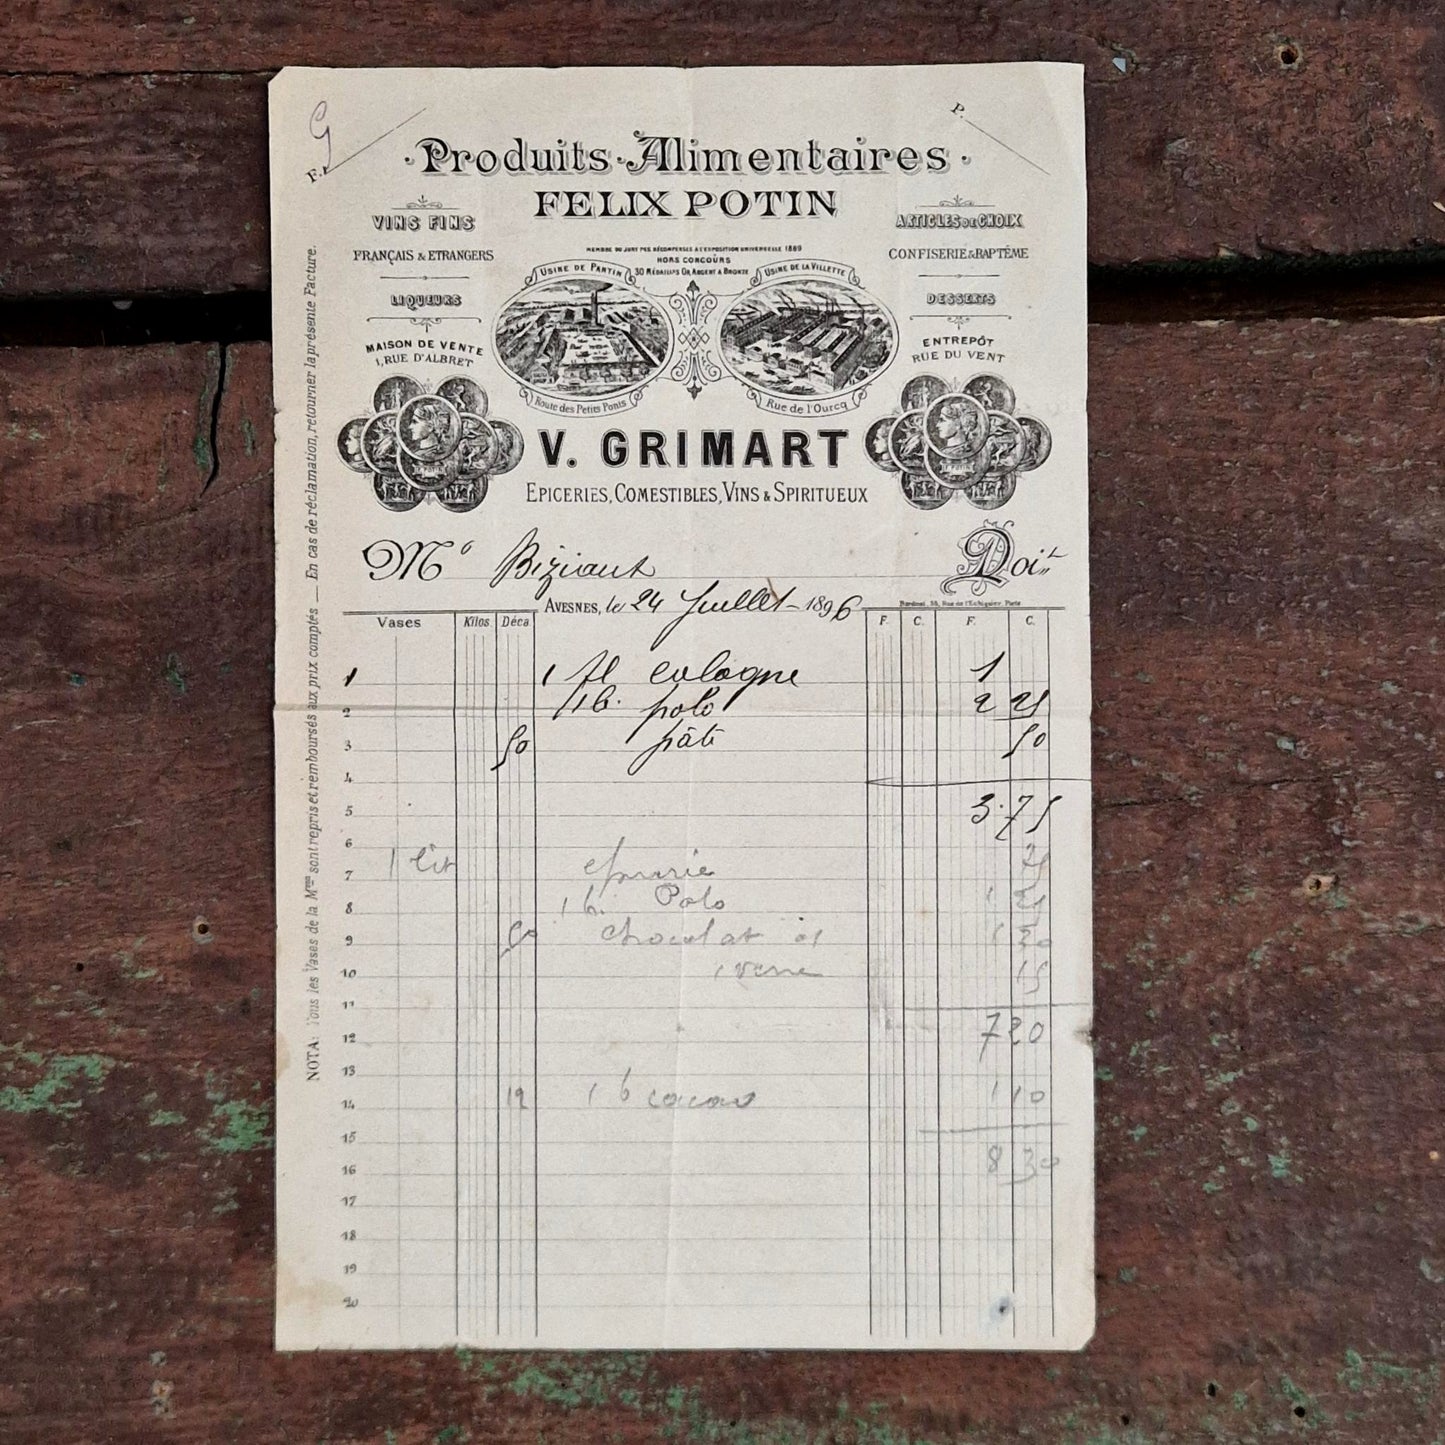 G
F.
P.
Produits Alimentaires
FELIX POTIN
VINS FINS
FRANÇAIS & ETRANGERS
LIQUEURS
MAISON DE VENTE
1, RUE D'ALBRET
MEMBRE DU JURY DES RÉCOMPENSES A L'EXPOSITION UNIVERSELLE 1889
HORS CONCOURS
30 MÉDAILLES OR, ARGENT & BRONZE
USINE DE PANTIN
Route des Petits Ponts
USINE DE LA VILLETTE
Rue de l'Ourcq
ARTICLES DE CHOIX
CONFISERIE & BAPTÊME
DESSERTS
ENTREPÔT
RUE DU VENT
V. GRIMART
EPICERIES, COMESTIBLES, VINS & SPIRITUEUX
M Biziaut Doit
AVESNES, le 24 Juillet 1896
Bardinal, 55, Rue de l'Echiquier, Paris
Vases Kilos Déca F. C. F. C.
1 1 fl cologne 1
2 1 b. polo 2 25
3 50 pâté 50
4
5 3.75
6
7 1 lit
8 1 b. Polo 1
9 50 chocolat 1 30
10 1 verre 15
11
12 7 20
13
14 12 1 b cacao 1 10
15
16 8 30
17
18
19
20
NOTA: Tous les Vases de la Mson sont repris et remboursés aux prix comptés — En cas de réclamation, retourner la présente Facture.